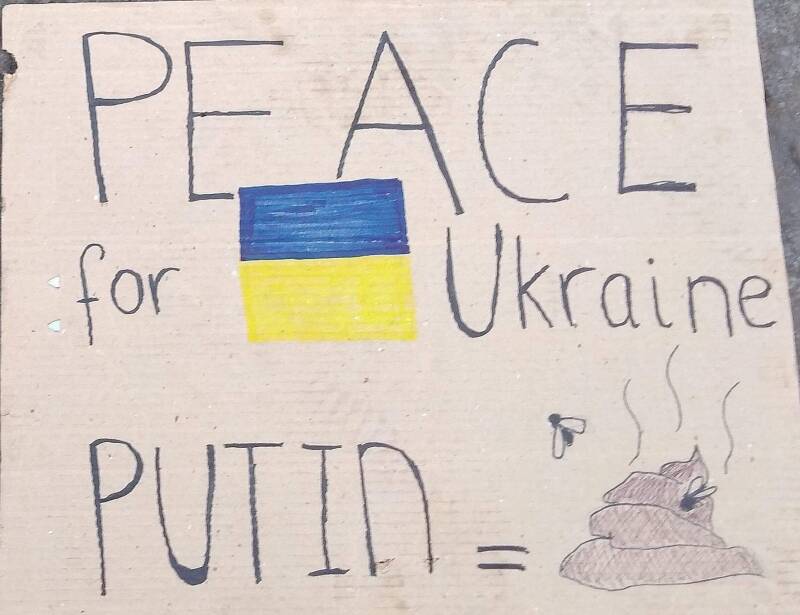 PEACE
for Ukraine
PUTIN =